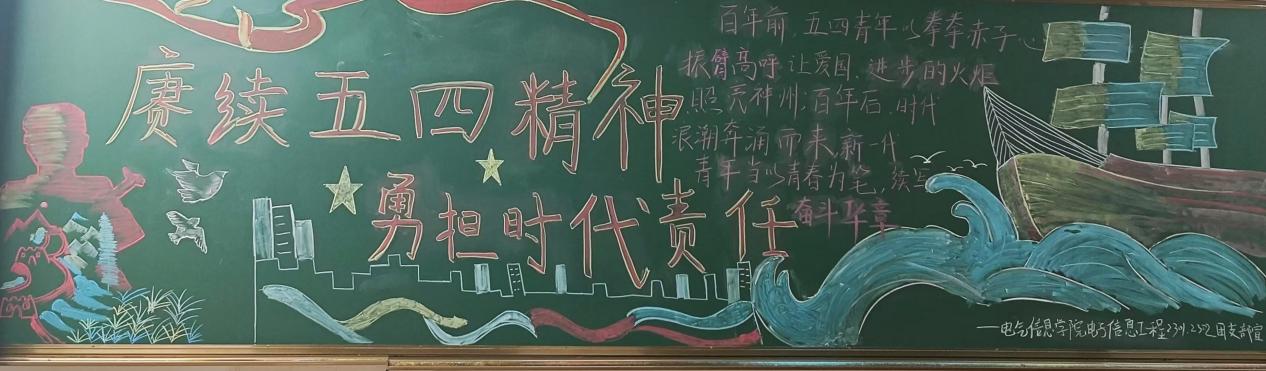 赓续五四精神
勇担时代责任
百年前,五四青年以拳拳赤子心
振臂高呼,让爱国、进步的火炬
照亮神州;百年后,时代
浪潮奔涌而来,新一代
青年当以青春为笔,续写
奋斗华章
——电气信息学院电子信息工程
团支部宣